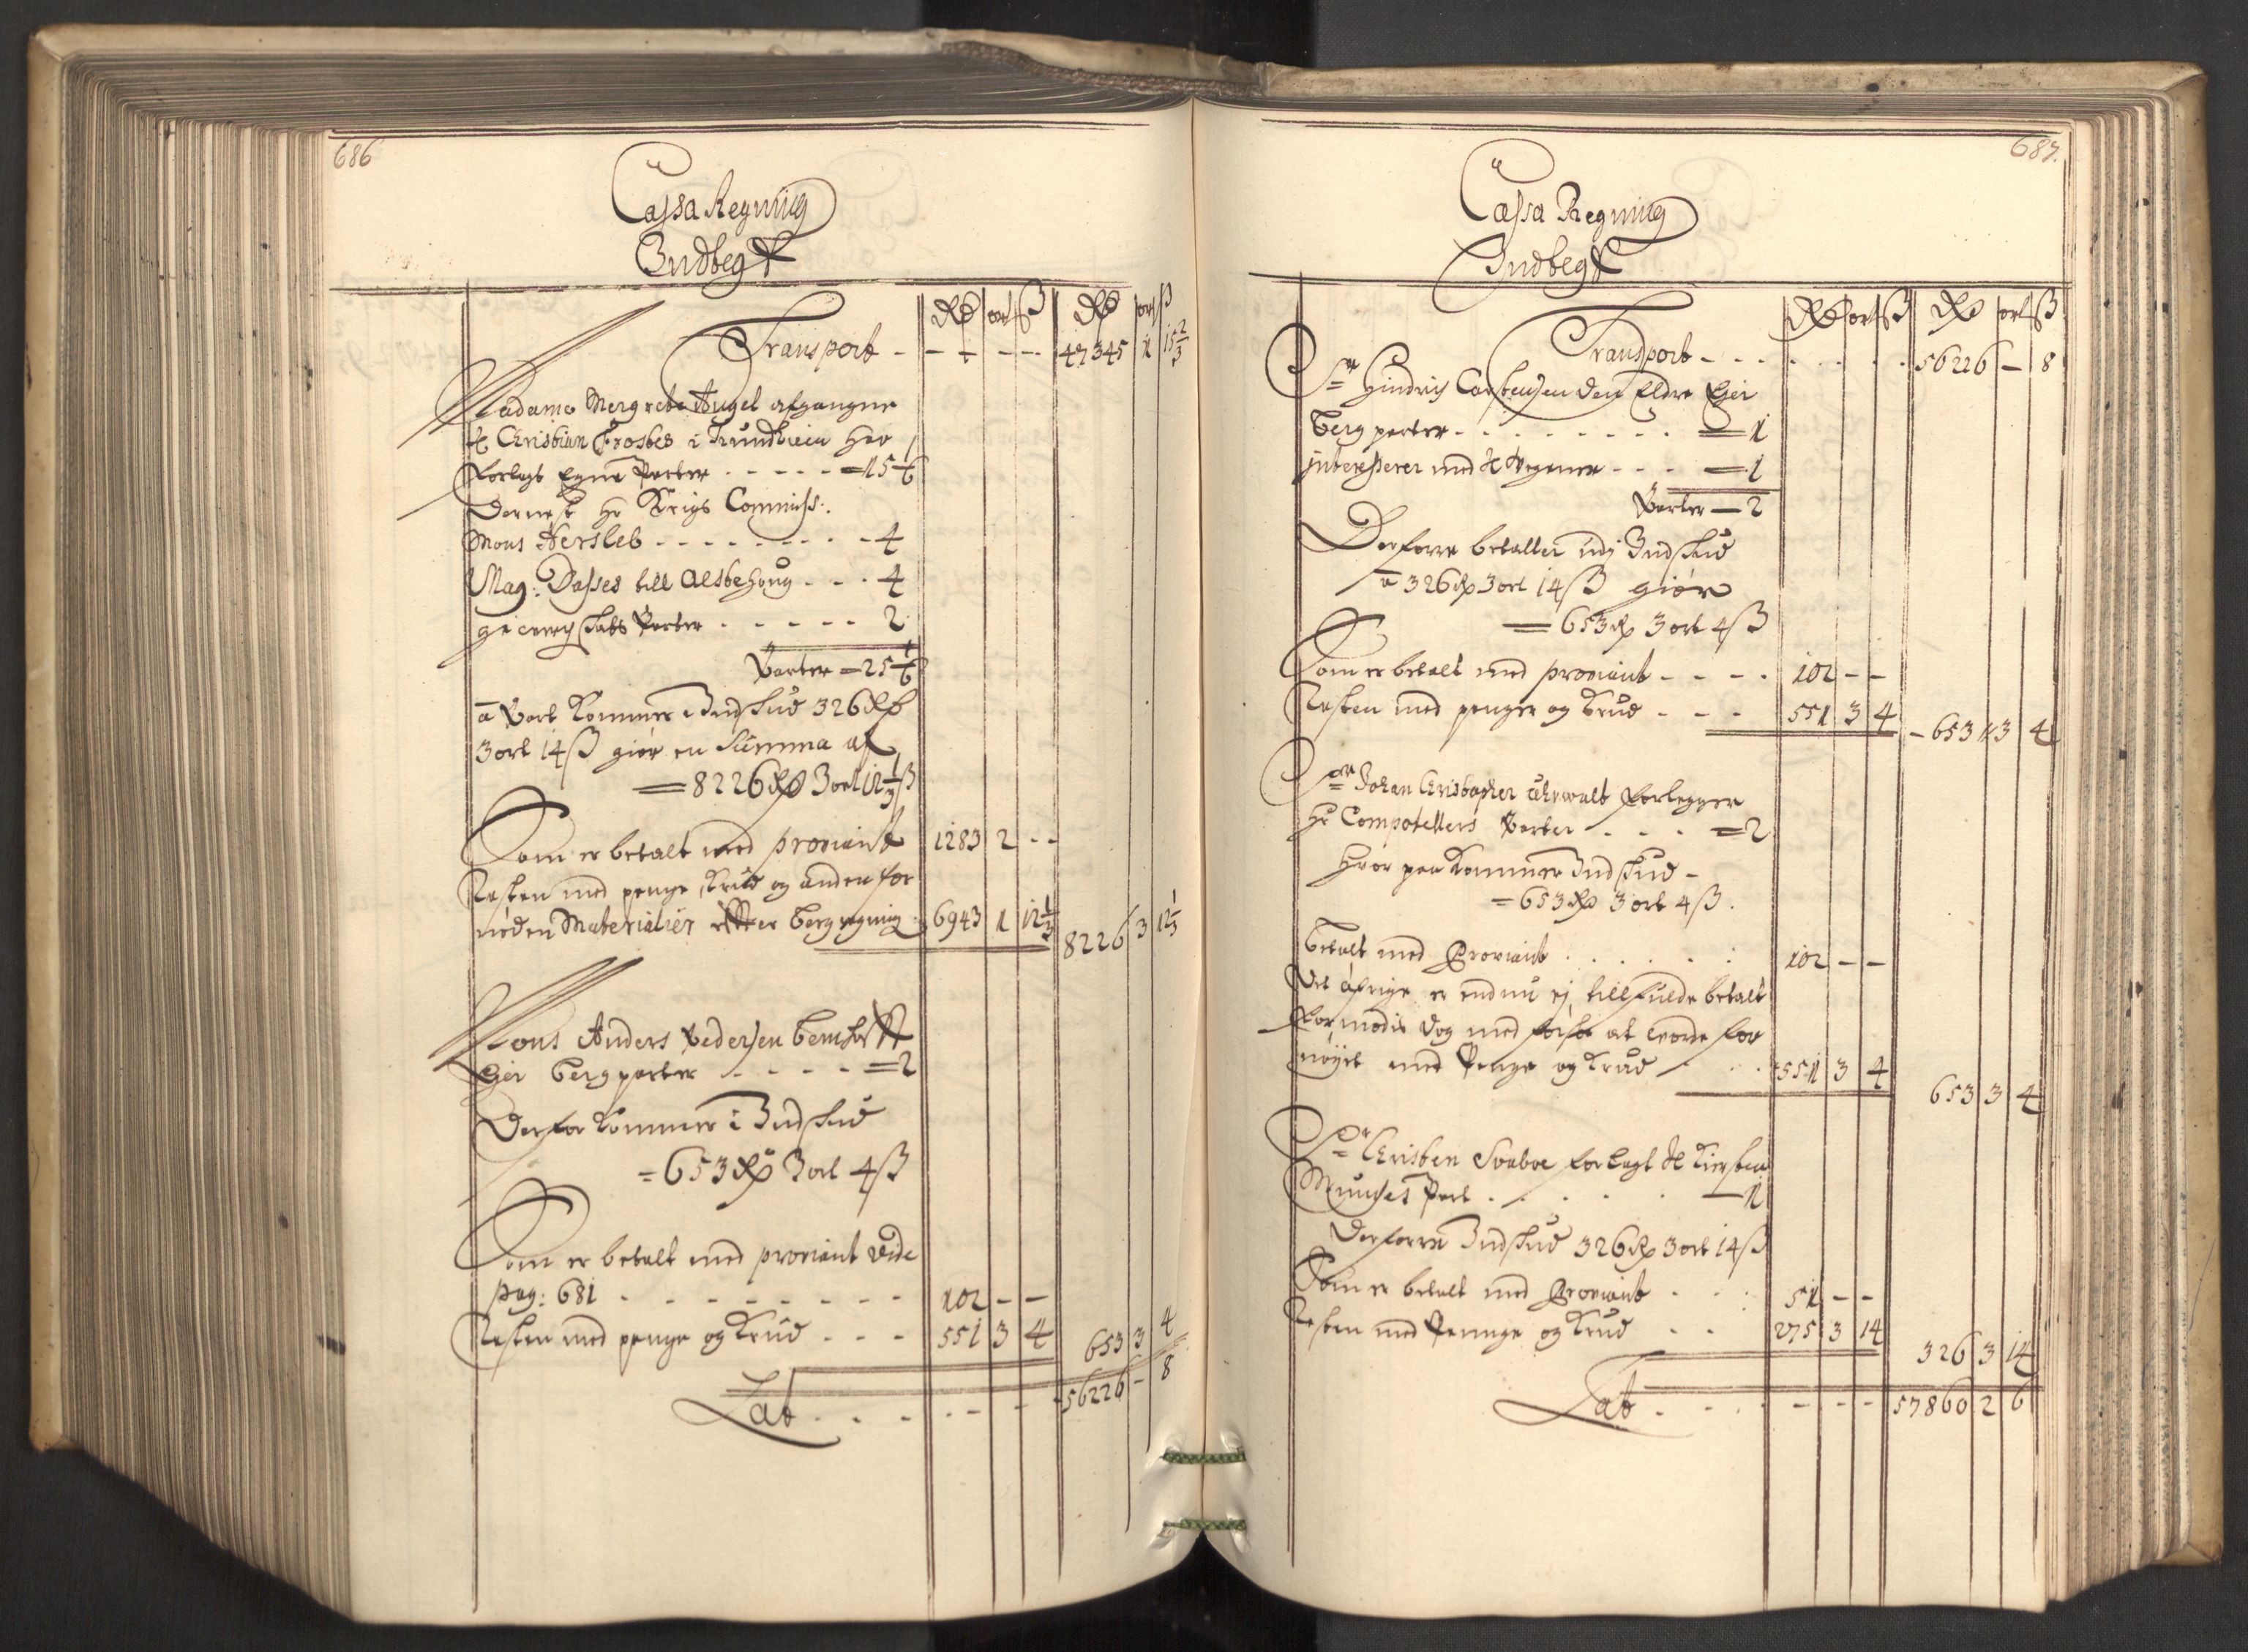 686
Cassa Regning
Indbegt
Rd ort ß Rd ort ß
Transport - - - - - 47345 1 15 2/3
Madame Mergrete Angel afgangne
Hr Christian Frostes i Trundhiem har
forlagt Egne Parter - - - - - = 15 1/6
Dernest Hr Krigs Commiss:
Mons Hersleb - - - - - - - - 4
Mag: Dasses till Alstehoug - - - 4
Parter - - - - - 2
Parter = 25 1/6
a Part Kommer i Indskud 326 Rd
3 ort 14 ß giør en Summa af
= 8226 Rd 3 ort 12 1/3 ß
Som er betalt med proviant 1283 2 - -
Resten med penge, Krud og anden for
nøden Materialier effter bergregning 6943 1 12 1/3 8226 3 12 1/3
Mons Anders Pedersen
Ejer Berg parter - - - - = 2
Derfor Kommer i Indskud
= 653 Rd 3 ort 4 ß
Som er betalt med proviant vide
pag: 681 - - - - - - - - - 102 - -
Resten med penge og Krud - - - 551 3 4 653 3 4
Lat - - - - - - 56226 - 8
687.
Cassa Regning
Indbegt
Rd ort ß Rd ort ß
Transport - - - - - - - 56226 - 8
Sr Hindrich Carstensen den Eldre Ejer
Berg parter - - - - - - - - = 1
interesserer med Hr Wegener - - - = 1
Parter - 2
Derforre betaller udj Indskud
a 326 Rd 3 ort 14 ß giør
= 653 Rd 3 ort 4 ß
Som er betalt med proviant - - - - 102 - -
Resten med penger og Krud - - - 551 3 4 - 653 3 4
Sr Johan Christopher forlegger
Hr Parter - - - = 2
hvor paa Kommer Indskud -
= 653 Rd 3 ort 4 ß.
Betalt med Proviant - - - - - - 102 - -
Det øfrige er endnu ej till fulde betalt
formodis dog med første at vorde for
nøyet med Penge og Krud - - - 551 3 4 653 3 4
Sr Christen Svaboe forlagt Hr Kirsten
Munches Part - - - - - - 1
Derforre Indskud 326 Rd 3 ort 14 ß
Som er betalt med Proviant - - - 51 - -
Resten med Pennge og Krud - - 275 3 14 326 3 14
Lat - - - - - - - 57860 2 6